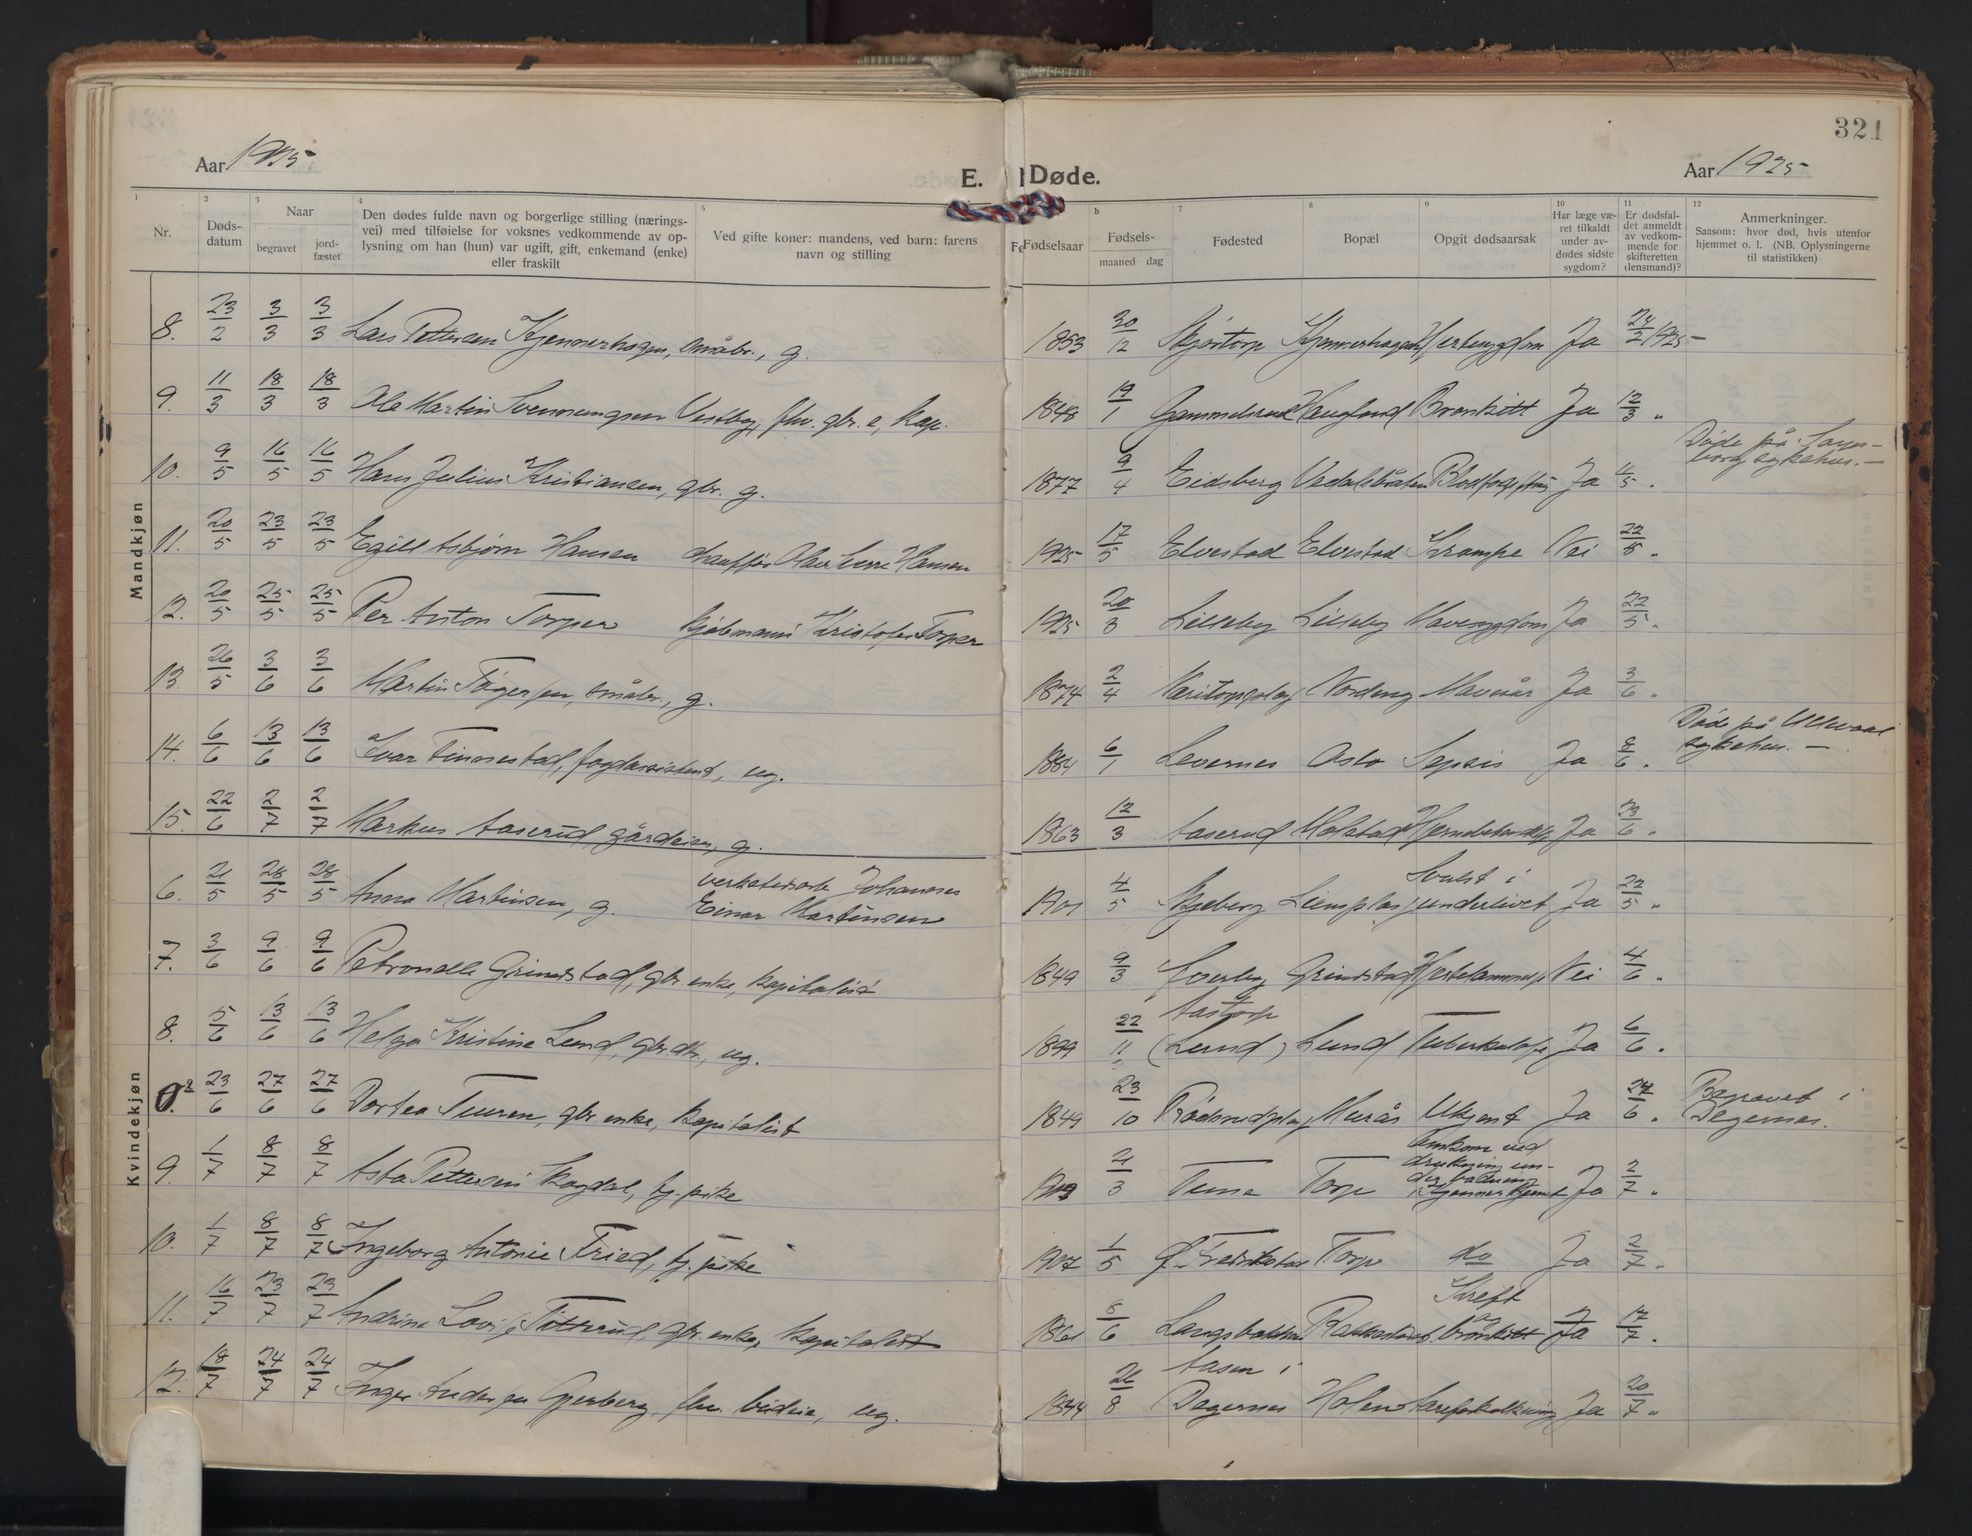 321
Aar 1925
E. Døde.
Aar 1925
1 2 3 4 5 b 7 8 9 10 11 12
Nr.
Døds-
datum
Naar
begravet
jord-
fæstet
Den dødes fulde navn og borgerlige stilling (nærings-
vei) med tilføielse for voksnes vedkommende av op-
lysning om han (hun) var ugift, gift, enkemand (enke)
eller fraskilt
Ved gifte koner: mandens, ved barn: farens
navn og stilling
Fødselsaar
Fødsels-
maaned dag
Fødested
Bopæl
Opgit dødsaarsak
Har læge væ-
ret tilkaldt
under av-
dødes sidste
sygdom?
Er dødsfal-
det anmeldt
av vedkom-
mende for
skifteretten
(lensmand)?
Anmerkninger.
Saasom: hvor død, hvis utenfor
hjemmet o. l. (NB. Oplysningerne
til statistikken)
Mandkjøn
8. 23/2 3/3 3/3 Lars Pettersen Kjennerhagen, småbr., g. 1853 30/12 Skjørtorp Kjennerhagen Hertesygdom Ja 24/2 1925
9. 11/3 18/3 18/3 Ole Martin Svennungsen Vestby, fhv. gbr. e, kap. 1848 19/1 Gammelsrud Haugland Bronkitt Ja 12/3 "
10. 9/5 16/5 16/5 Hans Julius Kristiansen, gbr. g. 1877 9/4 Eidsberg Ja 4/5 " Døde på Sarps-
borg sykehus.
11. 20/5 23/5 23/5 Egill Asbjørn Hansen chauffør Hansen 1925 17/5 Elvestad Elvestad Krampe Nei 22/5 "
12. 20/5 25/5 25/5 Per Anton Torper kjøbmann Kristofer Torper 1925 20/3 Lilleby Lilleby Mavesygdom Ja 22/5 "
13. 26/5 3/6 3/6 Martin småbr., g. 1874 2/4 Nordeng Mavesår Ja 3/6 "
14. 6/6 13/6 13/6 Ivar Finnestad, fogdassistent, ug. 1884 6/1 Levernes Oslo Sepsis Ja 8/6 " Døde på Ullevaal
sykehus.
15. 22/6 2/7 2/7 Markus Aaserud, gårdeier, g. 1863 12/3 Aaserud Molstad Ja 23/6 "
Kvindekjøn
6. 21/5 28/5 28/5 Anna Martinsen, g. verkstedsarb Johannes
Einar Martinsen 1901 4/5 Skjeberg Lienplas Svulst i
underlivet Ja 22/5 "
7. 3/6 9/6 9/6 Petronelle Grimstad, gbr. enke, kapitalist 1849 9/3 Grimstad Nei 4/6 "
8. 5/6 13/6 13/6 Helga Kristine Lund, gbr. dtr., ug. 1899 22/11 Aastorp
(Lund) Lund Tuberkulose Ja 6/6 "
23/6 27/6 27/6 Dortea Tiuren, gbr. enke, kapitalist 1849 23/10 Rødsrudplas Murås Ukjent Ja 24/6 " Begravet i
Degernes.
9. 1/7 8/7 8/7 Asta Pettersen Skogdal, tj. pike 21/3 Tune Torp Omkom ved
drukning un-
der badning
Ja 2/7 "
10. 1/7 8/7 8/7 Ingeborg Antonie Fried, tj. pike 1907 1/5 Ø. Fredrikstad Torp do Ja 2/7 "
11. 16/7 23/7 23/7 Andrine Lovise gbr. enke, kapitalist 1861 Langsbakken Rakkestad Kreft
og
bronkitt Ja 17/7 "
12. 18/7 24/7 24/7 Inger Andersen Gjerberg, fhv. budeie, ug. 1844 26/8 Aasen i
Degernes Holen Aareforkalkning Ja 20/7 "